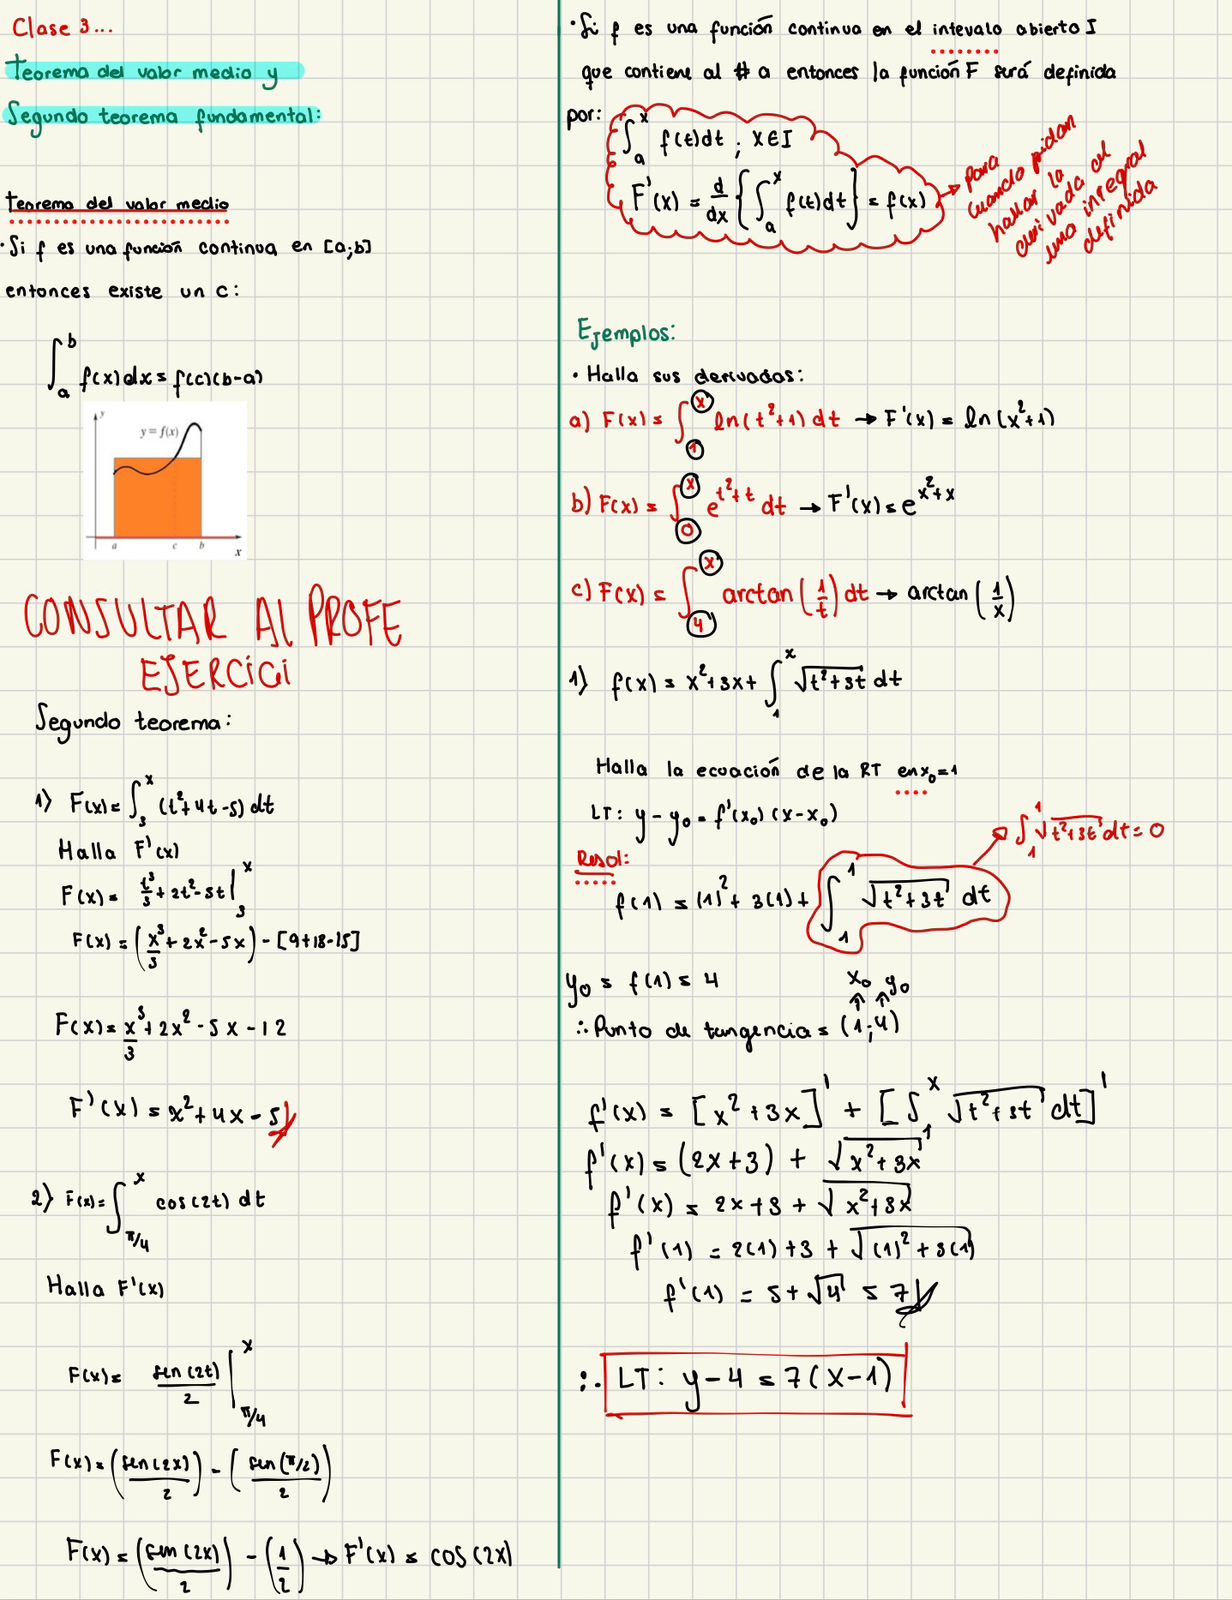 Clase 3...
Teorema del valor medio y
Segundo teorema fundamental:
Teorema del valor medio
· Si f es una función continua en [a;b]
entonces existe un c:
∫_a^b f(x)dx = f(c)(b-a)
y
y = f(x)
a c b x
CONSULTAR AL PROFE
EJERCICI
Segundo teorema:
1) F(x) = ∫_3^x (t²+4t-5) dt
Halla F'(x)
F(x) = t³/3 + 2t² - 5t |_3^x
F(x) = (x³/3 + 2x² - 5x) - [9+18-15]
F(x) = x³/3 + 2x² - 5x - 12
F'(x) = x² + 4x - 5
2) F(x) = ∫_{π/4}^x cos(2t) dt
Halla F'(x)
F(x) = sen(2t)/2 |_{π/4}^x
F(x) = (sen(2x)/2) - (sen(π/2)/2)
F(x) = (sen(2x)/2) - (1/2) → F'(x) = cos(2x)
· Si f es una función continua en el intevalo abierto I
que contiene al # a entonces la función F será definida
por:
∫_a^x f(t)dt ; x∈I
F'(x) = d/dx {∫_a^x f(t)dt} = f(x)
→ para
cuando pidan
hallar la
derivada de
una integral
definida
Ejemplos:
· Halla sus derivadas:
a) F(x) = ∫_1^x ln(t²+1) dt → F'(x) = ln(x²+1)
b) F(x) = ∫_0^x e^{t²+t} dt → F'(x) = e^{x²+x}
c) F(x) = ∫_4^x arctan(1/t) dt → arctan(1/x)
1) f(x) = x²+3x+ ∫_1^x √(t²+3t) dt
Halla la ecuación de la RT en x₀=1
LT: y - y₀ = f'(x₀)(x-x₀)
→ ∫_1^1 √(t²+3t) dt = 0
Resol:
f(1) = (1)² + 3(1) + ∫_1^1 √(t²+3t) dt
y₀ = f(1) = 4
x₀ y₀
∴ Punto de tangencia = (1;4)
f'(x) = [x²+3x]' + [∫_1^x √(t²+3t) dt]'
f'(x) = (2x+3) + √(x²+3x)
f'(x) = 2x+3 + √(x²+3x)
f'(1) = 2(1)+3 + √((1)²+3(1))
f'(1) = 5+√4 = 7
∴ LT: y-4 = 7(x-1)